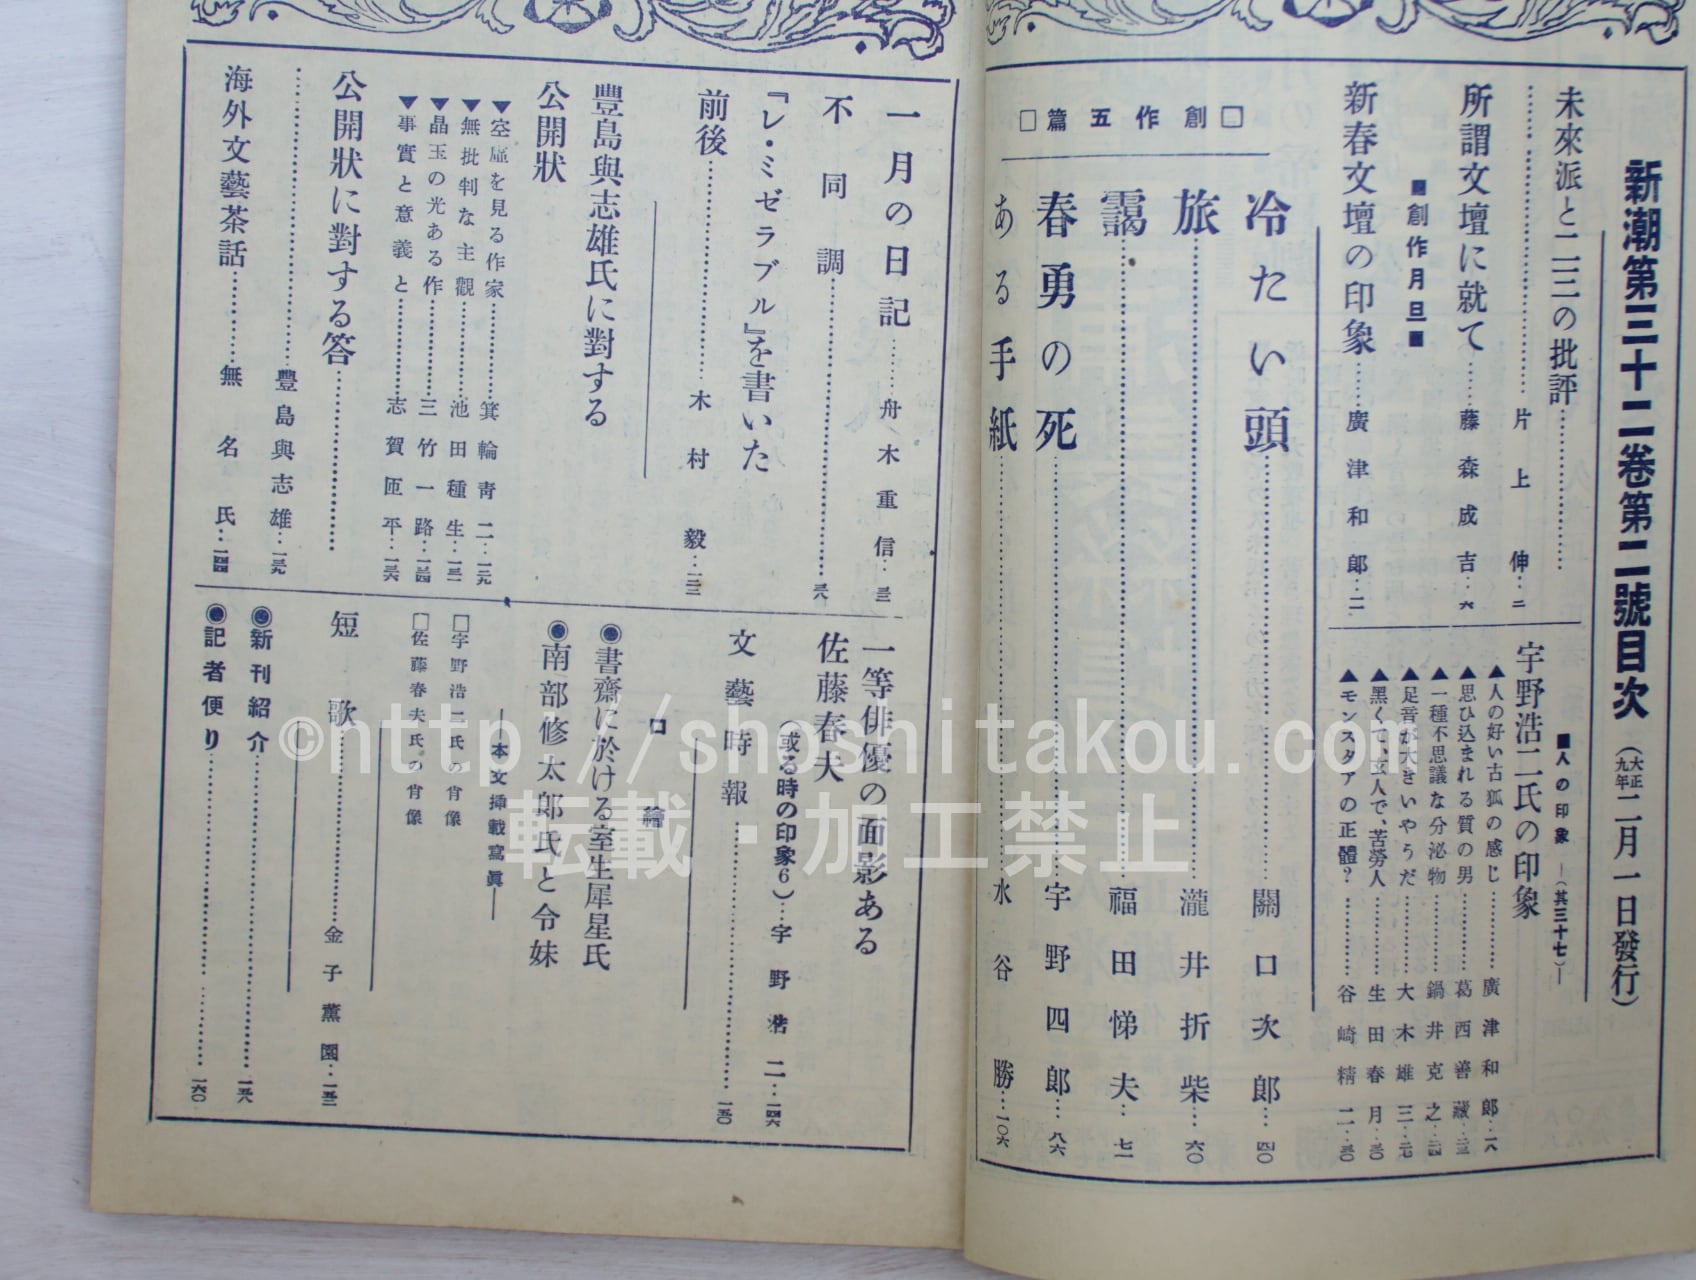 新潮第三十二卷第二號目次（大正九年二月一日發行）
未來派と二三の批評………
………片上伸‥二
所謂文壇に就て……藤森成吉‥六
■創作月旦■
新春文壇の印象……廣津和郎‥一一
■人の印象―（其三十七）―
宇野浩二氏の印象
▲人の好い古狐の感じ………廣津和郎‥一八
▲思ひ込まれる質の男………葛西善藏‥二三
▲一種不思議な分泌物………鍋井克之‥二四
▲足音が大きいやうだ………大木雄三‥二九
▲黑くて、玄人で、苦勞人………生田春月‥三〇
▲モンスタアの正體？………谷崎精二‥三〇
□創作五篇□
冷たい頭………關口次郎…四〇
旅………瀧井折柴…六〇
靄………福田悌夫‥七一
春勇の死………宇野四郎…八六
ある手紙………水谷勝…一〇六
一月の日記……舟木重信‥三三
不同調………三八
『レ・ミゼラブル』を書いた
前後………木村毅‥一二三
豐島與志雄氏に對する
公開狀
▼空虛を見る作家………箕輪靑二‥一二九
▼無批判な主觀………池田種生‥一三一
▼晶玉の光ある作………三竹一路‥一三四
▼事實と意義と………志賀匝平‥一三六
公開狀に對する答………
………豐島與志雄‥一三九
海外文藝茶話………無名氏‥一四四
一等俳優の面影ある
佐藤春夫
（或る時の印象6）…宇野浩二‥一四六
文藝時報………一五〇
口繪
●書齋に於ける室生犀星氏
●南部修太郎氏と令妹
―本文挿載寫眞―
□宇野浩二氏の肖像
□佐藤春夫氏の肖像
短歌………金子薰園‥一五三
●新刊紹介………一五八
●記者便り………一六〇
©http://shoshitakou.com
転載・加工禁止